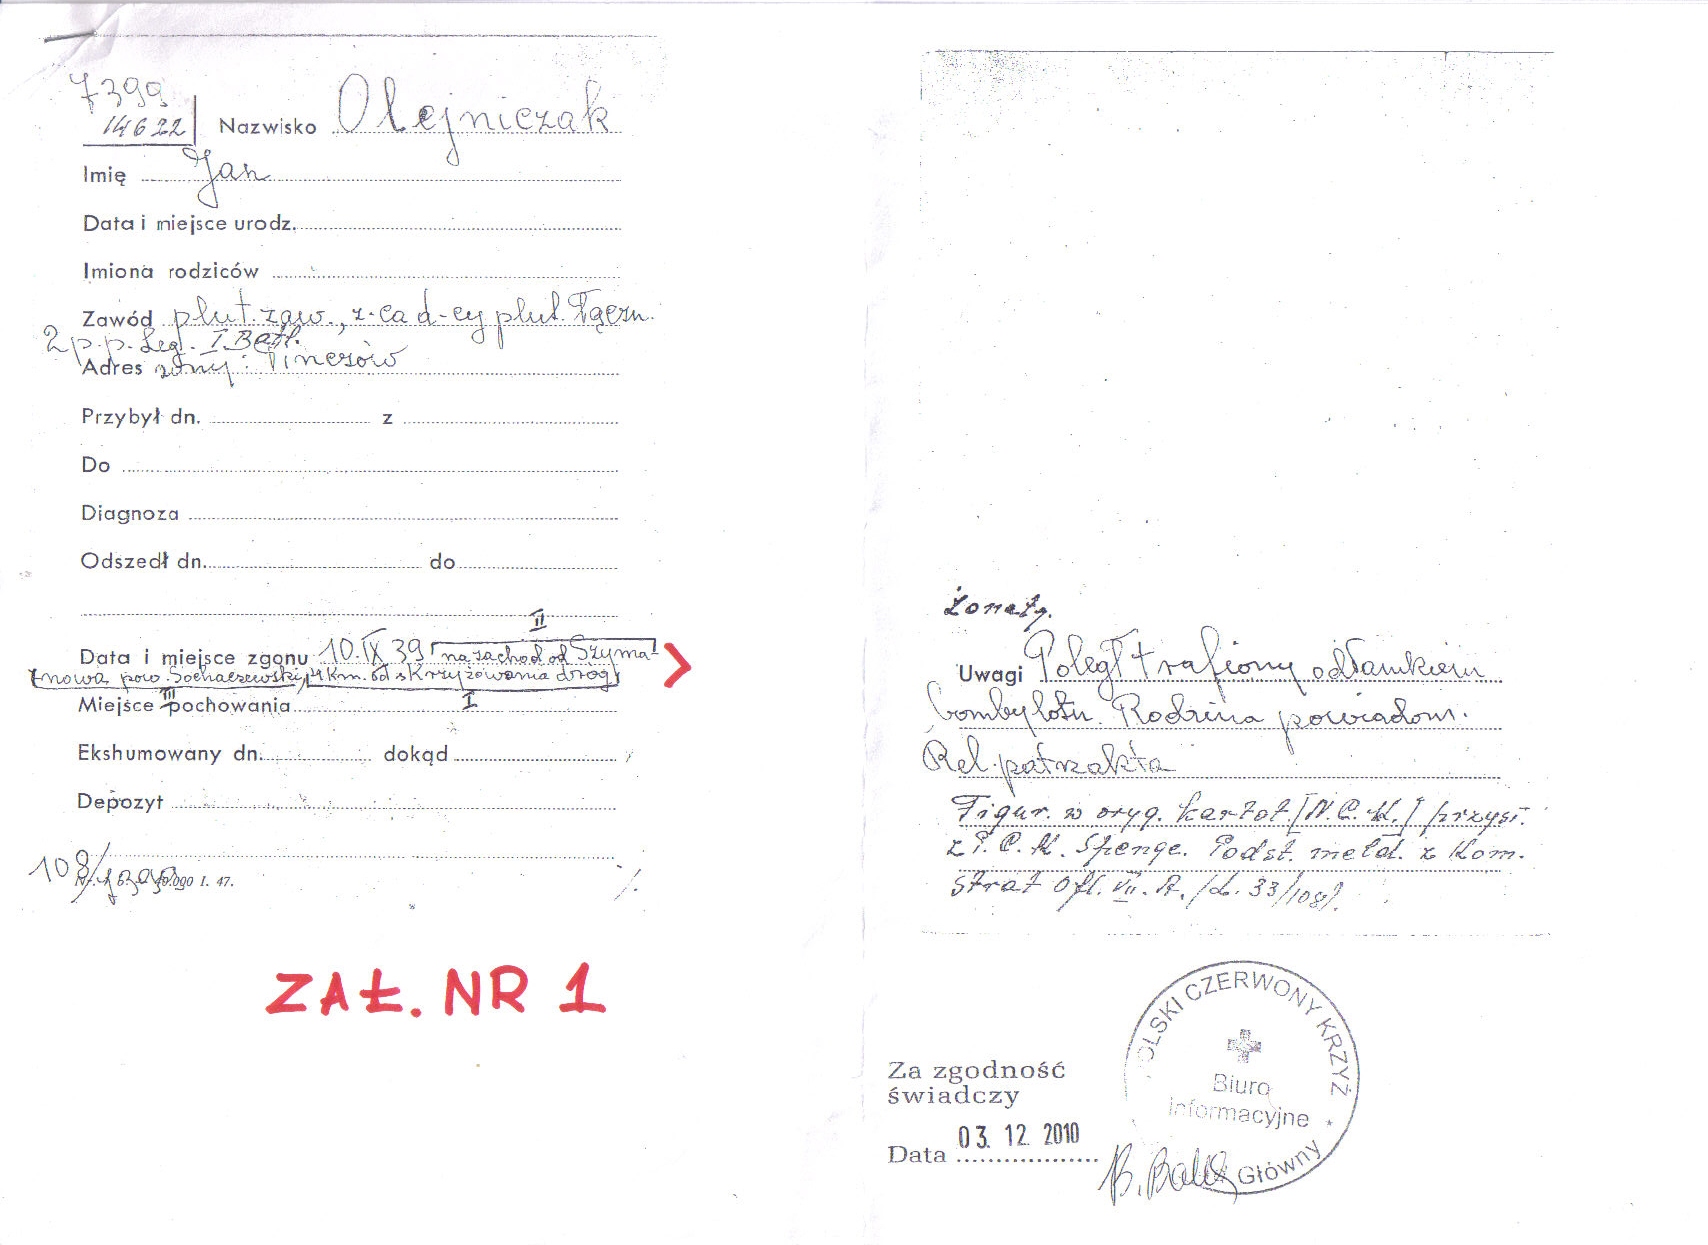 7399
14622
Nazwisko Olejniczak
Imię Jan
Data i miejsce urodz.
Imiona rodziców
Zawód plut. zaw., z-ca d-cy plut. łączn.
2 p.p. Leg. I. Batl.
Adres żony: Pinczów
Przybył dn. z
Do
Diagnoza
Odszedł dn. do
II
Data i miejsce zgonu 10.IX 39 na zachód od Szyma-
nowa pow. Sochaczewski, 4 km. od skrzyżowania dróg
III I
Miejsce pochowania
Ekshumowany dn. dokąd
Depozyt
108/7399
I. 47.
ZAŁ. NR 1
żonaty.
Uwagi Poległ trafiony odłamkiem
bomby lotn. Rodzina powiadom.
Rel. patrz akta
Figur. w oryg. kartot. [N.C.K.] przysł.
z P.C.K. Spenge. Podst. meld. z Kom.
strat Ofl. VII. A. /L. 33/108/.
POLSKI CZERWONY KRZYŻ
Biuro
Informacyjne
Główny
Za zgodność
świadczy
Data 03. 12. 2010